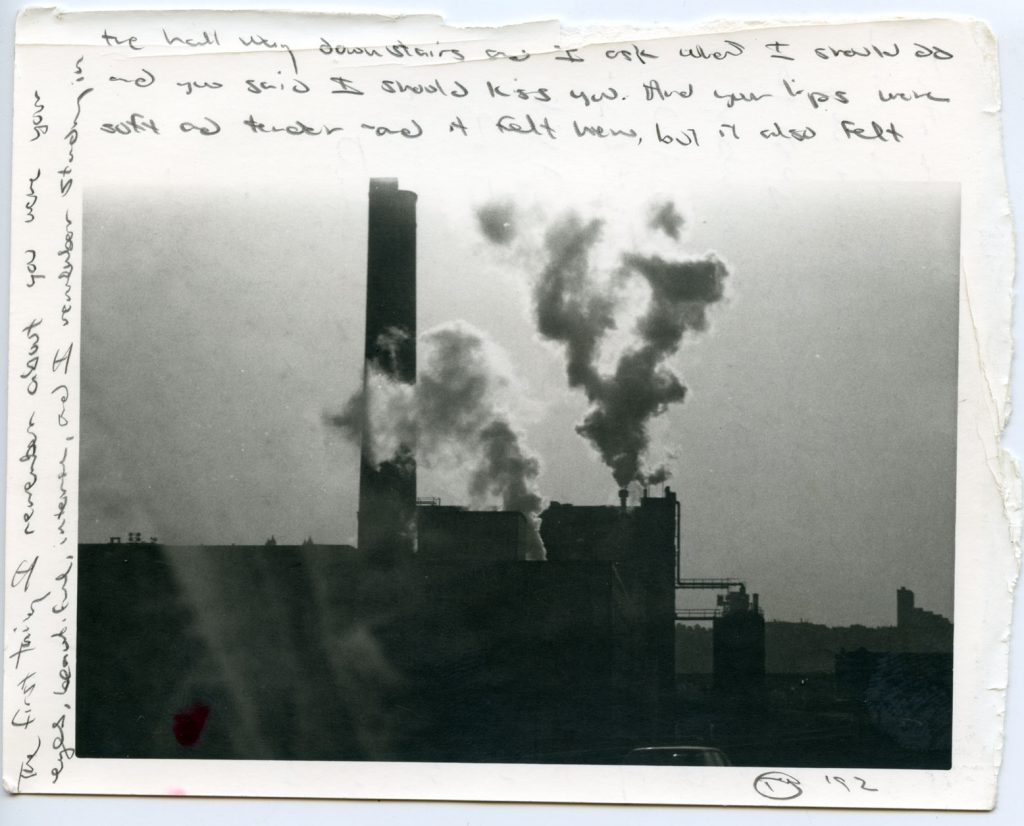 The first thing I remember about you were your
eyes, beautiful, intense, and I remember standing in
the hall way downstairs and I ask what I should do
and you said I should kiss you. And your lips were
soft and tender and it felt new, but it also felt
192